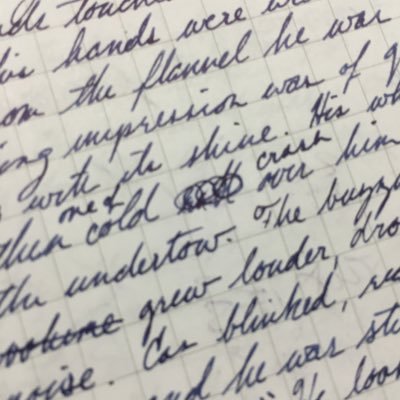 touch
his hands were
from the flannel he was
impression was of
with its shine. His
one of crash
then cold over him
the undertow. The buzz
grew louder, dro
noise. Cas blinked,
and he was st
he loo